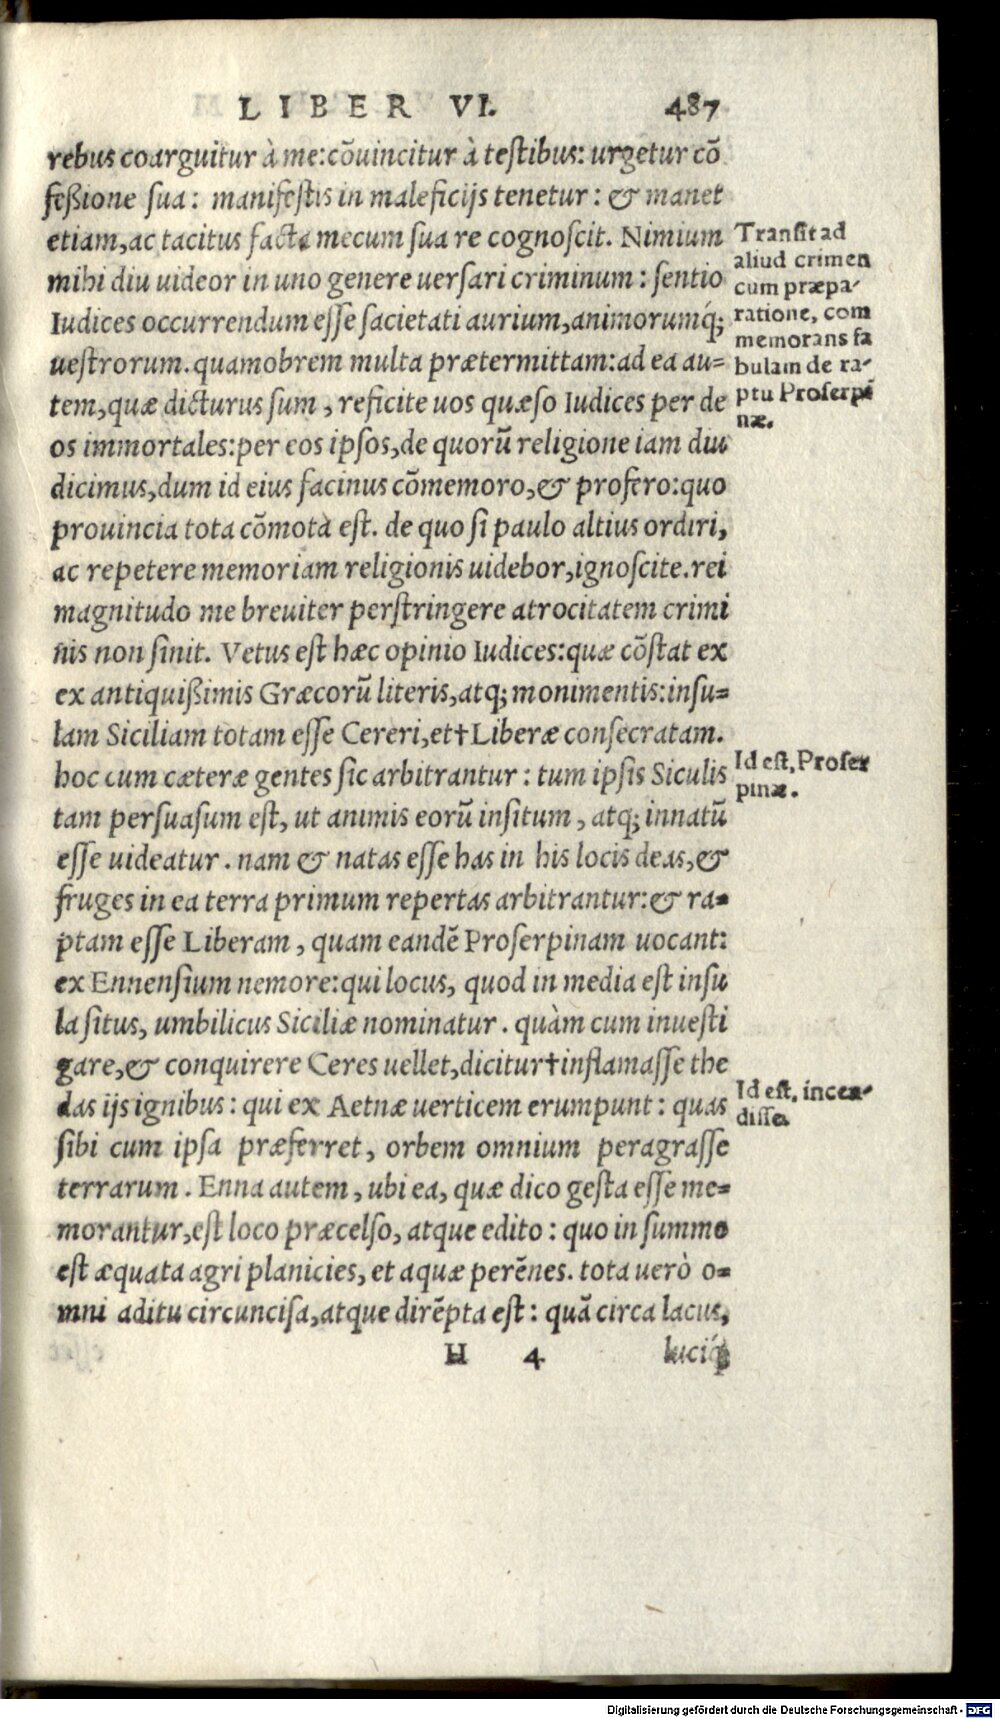 LIBER VI. 487
rebus coarguitur à me:cõuincitur à testibus: urgetur cõ
feßione sua: manifestis in maleficijs tenetur: & manet
etiam,ac tacitus facta mecum sua re cognoscit. Nimium
mihi diu uideor in uno genere uersari criminum: sentio
Iudices occurrendum esse sacietati aurium,animorumq́;
uestrorum. quamobrem multa prætermittam:ad ea au=
tem,quæ dicturus sum, reficite uos quæso Iudices per de
os immortales:per eos ipsos,de quorũ religione iam diu
dicimus,dum id eius facinus cõmemoro,& profero:quo
prouincia tota cõmota est. de quo si paulo altius ordiri,
ac repetere memoriam religionis uidebor,ignoscite.rei
magnitudo me breuiter perstringere atrocitatem crimi
nis non sinit. Vetus est hæc opinio Iudices:quæ cõstat ex
ex antiquißimis Græcorũ literis,atq; monimentis:insu=
lam Siciliam totam esse Cereri,et†Liberæ consecratam.
hoc cum cæteræ gentes sic arbitrantur: tum ipsis Siculis
tam persuasum est, ut animis eorũ insitum, atq; innatũ
esse uideatur. nam & natas esse has in his locis deas,&
fruges in ea terra primum repertas arbitrantur:& ra=
ptam esse Liberam, quam eandẽ Proserpinam uocant:
ex Ennensium nemore:qui locus, quod in media est insu
la situs, umbilicus Siciliæ nominatur. quàm cum inuesti
gare,& conquirere Ceres uellet,dicitur†inflamasse the
das ijs ignibus: qui ex Aetnæ uerticem erumpunt: quas
sibi cum ipsa præferret, orbem omnium peragrasse
terrarum. Enna autem, ubi ea, quæ dico gesta esse me=
morantur,est loco præcelso, atque edito: quo in summo
est æquata agri planicies, et aquæ perẽnes. tota uerò o=
mni aditu circuncisa,atque dirẽpta est: quã circa lacus,
H 4 luciq́;
Transit ad
aliud crimen
cum præpa-
ratione, com
memorans fa
bulam de ra-
ptu Proserpi
næ.
Id est, Proser
pinæ.
Id est, incen-
disse.
Digitalisierung gefördert durch die Deutsche Forschungsgemeinschaft - DFG